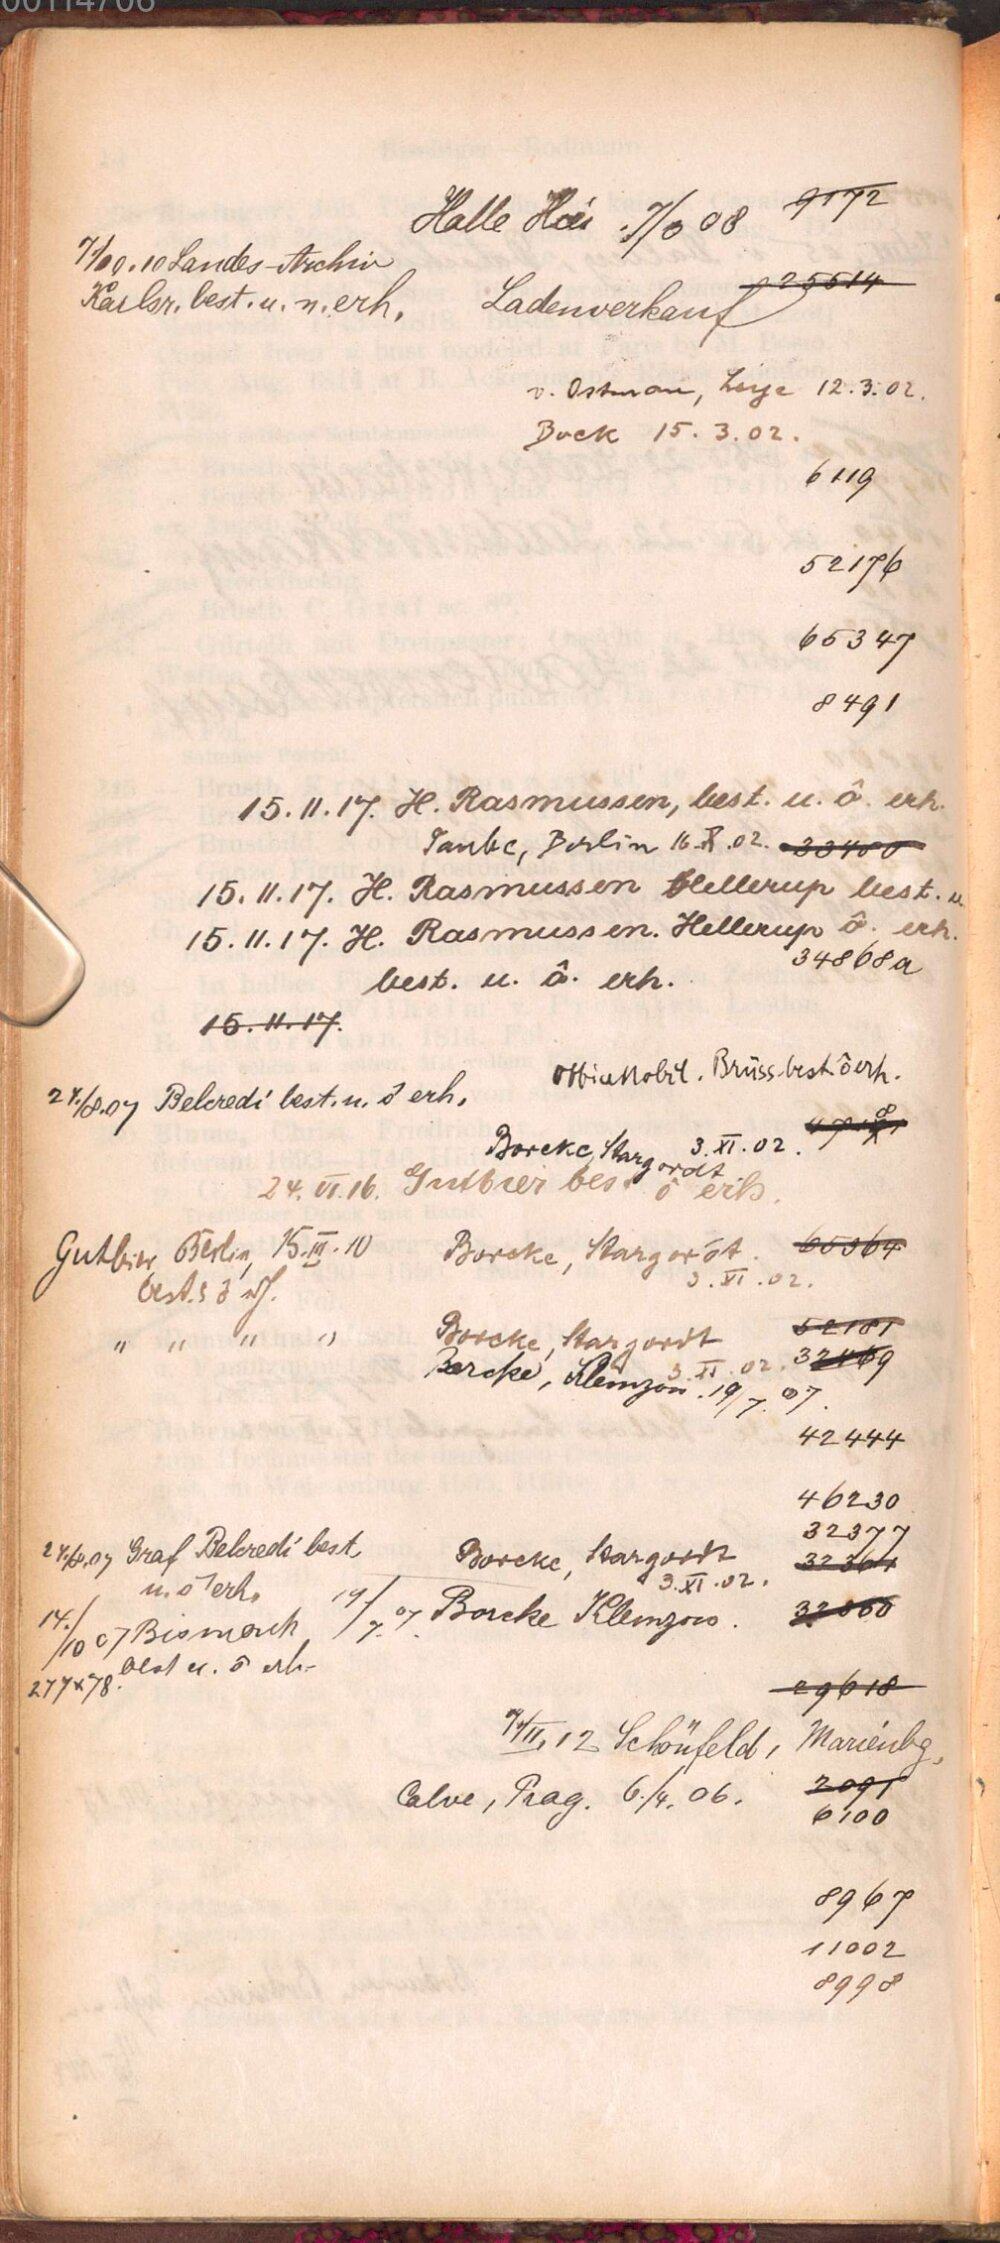 00114706
Halle 7/6 08 9172
7/09.10 Landes-Archiv
Karlsr. best. u. n. erh.
Ladenverkauf 25514
v. Ostman, 12.3.02.
Bock 15.3.02.
6119
52176
65347
8491
15.11.17. H. Rasmussen, best. u. ô. erh.
Taube, Berlin 16.X.02.
15.11.17. H. Rasmussen Hellerup best. u.
15.11.17. H. Rasmussen. Hellerup ô. erh.
34868a
best. u. ô. erh.
15.11.17.
Nobil. Brüss. best. ô erh.
24./8.07 Belcredi best. u. ô erh.
Borcke, Stargordt 3.XI.02.
24.VI.16. Gutbier best ô erh.
Gutbier Berlin, 15.III.10
Borcke, Stargordt. 65364
3.XI.02.
" " " "
Borcke, Stargordt 52181
3.XI.02. 32469
Borcke, Klemzow. 19/7.07.
42444
46230
32377
24./8.07 Graf Belcredi best.
u. ô erh.
Borcke, Stargordt 32361
3.XI.02.
19/7.07 Borcke Klemzow. 32360
14./10 07 Bismarck
best u. ô erh.
277x78.
29618
7/II.12 Schönfeld, Marienbg.
Calve, Prag. 6./4.06. 2091
6100
8967
11002
8998